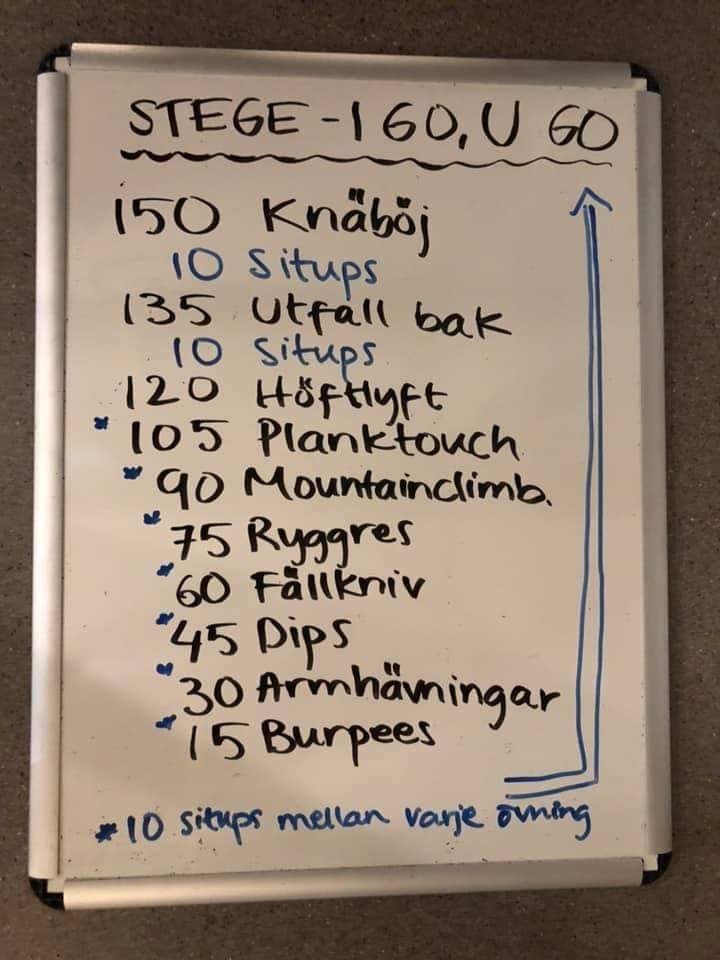 STEGE - I GO, U GO
150 Knäböj
10 Situps
135 Utfall bak
10 Situps
120 Höftlyft
* 105 Planktouch
* 90 Mountainclimb.
* 75 Ryggres
* 60 Fällkniv
* 45 Dips
* 30 Armhävningar
* 15 Burpees
* 10 situps mellan varje övning